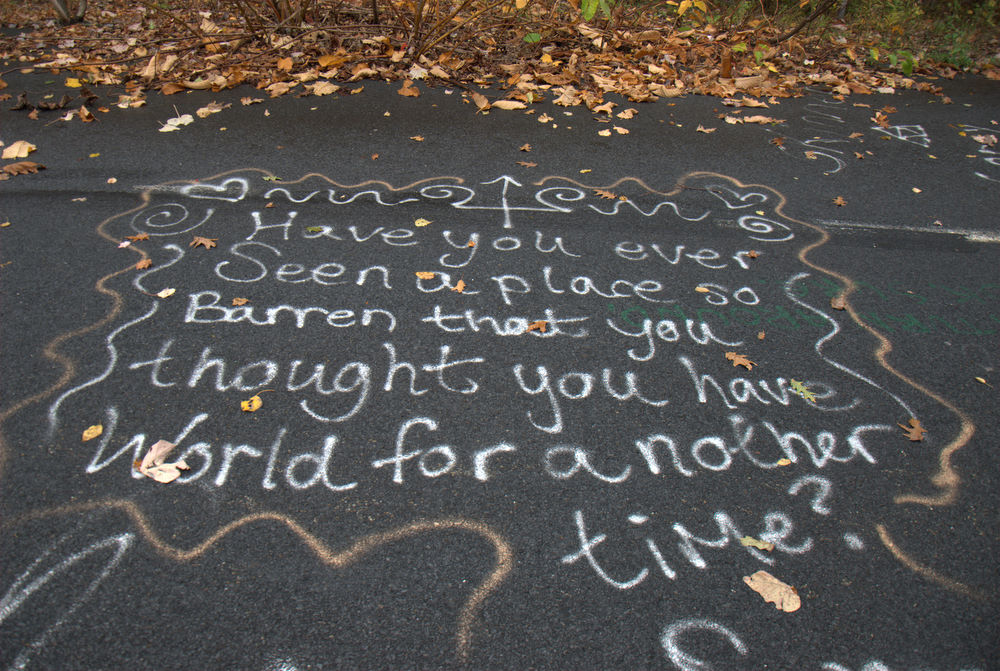 Have you ever
Seen a place so
Barren that you
thought you have
World for another
time?